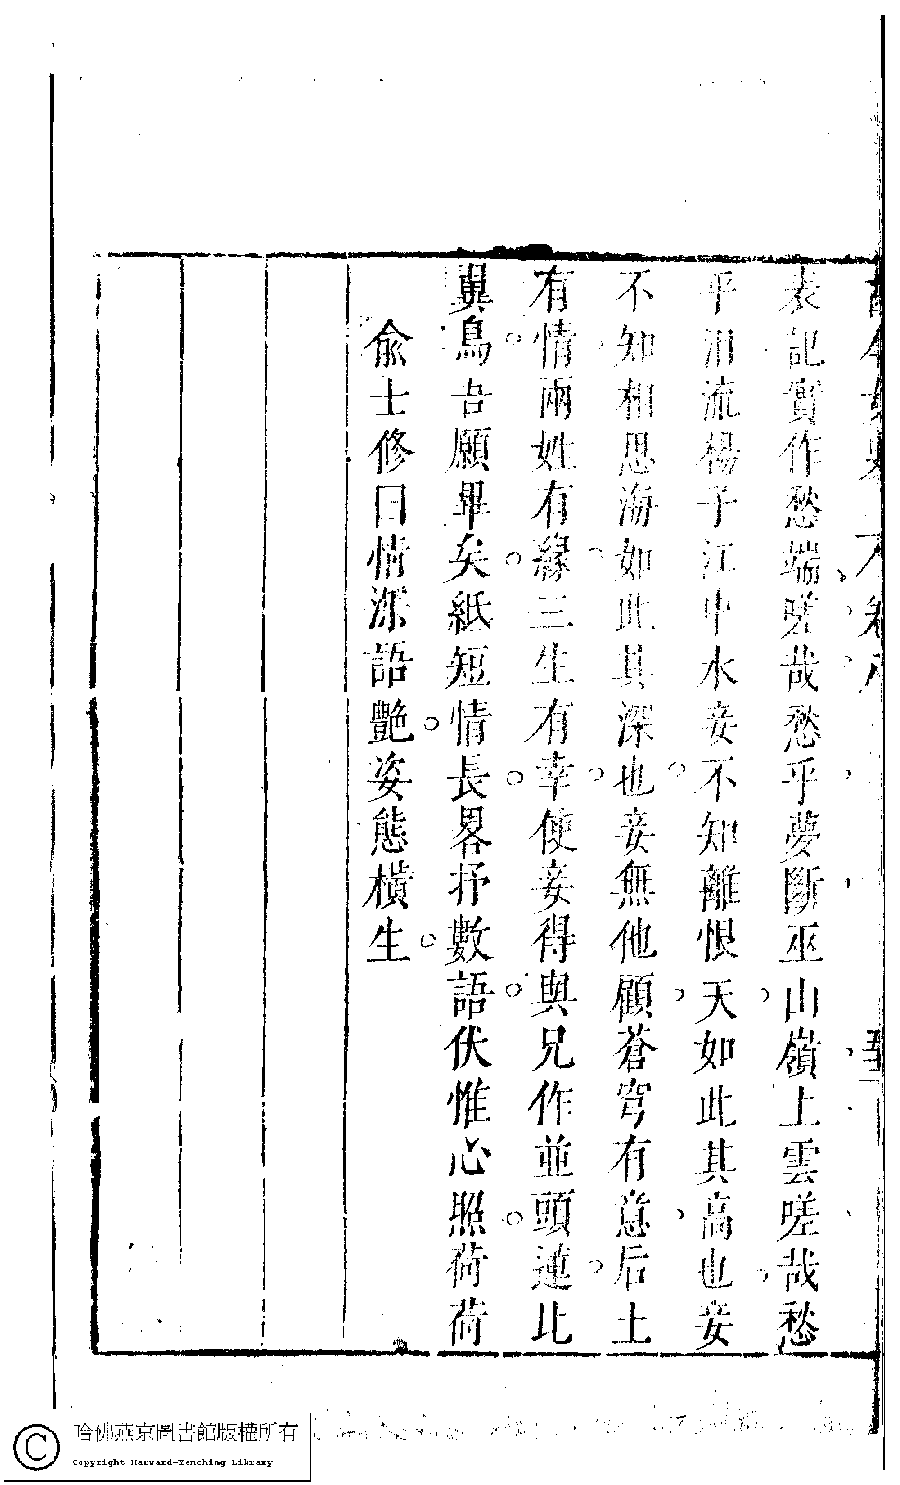 表記實作愁端嗟哉愁乎夢斷巫山嶺上雲嗟哉愁
乎淚流楊子江中水妾不知離恨天如此其高也妾
不知相思海如此其深也妾無他顧蒼穹有意后土
有情兩姓有緣三生有幸使妾得與兄作並頭蓮比
翼鳥吾願畢矣紙短情長畧抒數語伏惟心照荷荷
俞士修曰情深語艷姿態橫生
哈佛燕京圖書館版權所有
Copyright Harvard-Yenching Library